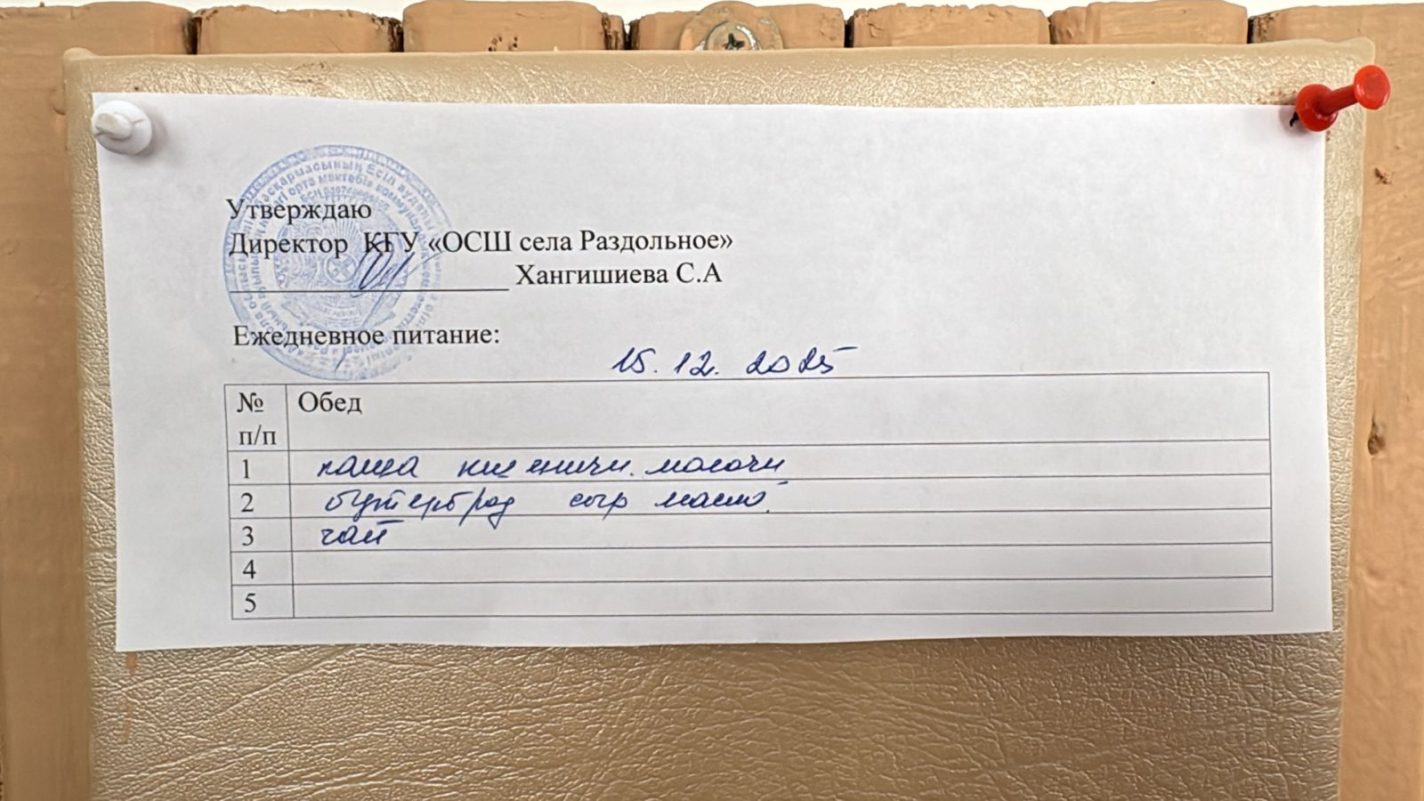 Утверждаю
Директор КГУ «ОСШ села Раздольное»
Хангишиева С.А
Ежедневное питание:
15. 12. 2025
№ п/п Обед
1 каша пшеничн. молочн
2 бутерброд сыр масло.
3 чай
4
5